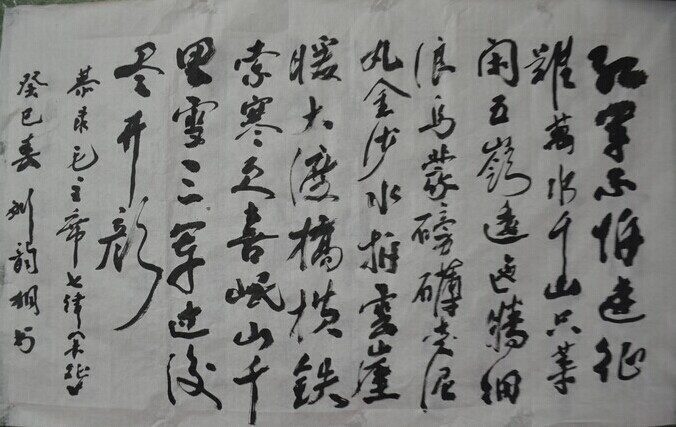 红军不怕远征
難萬水千山只等
闲五嶺逶迤腾细
浪乌蒙磅礴走泥
丸金沙水拍雲崖
暖大渡橋横鉄
索寒更喜岷山千
里雪三军过后
尽开颜
恭录毛主席七律《长征》
癸巳春刘韵桐书